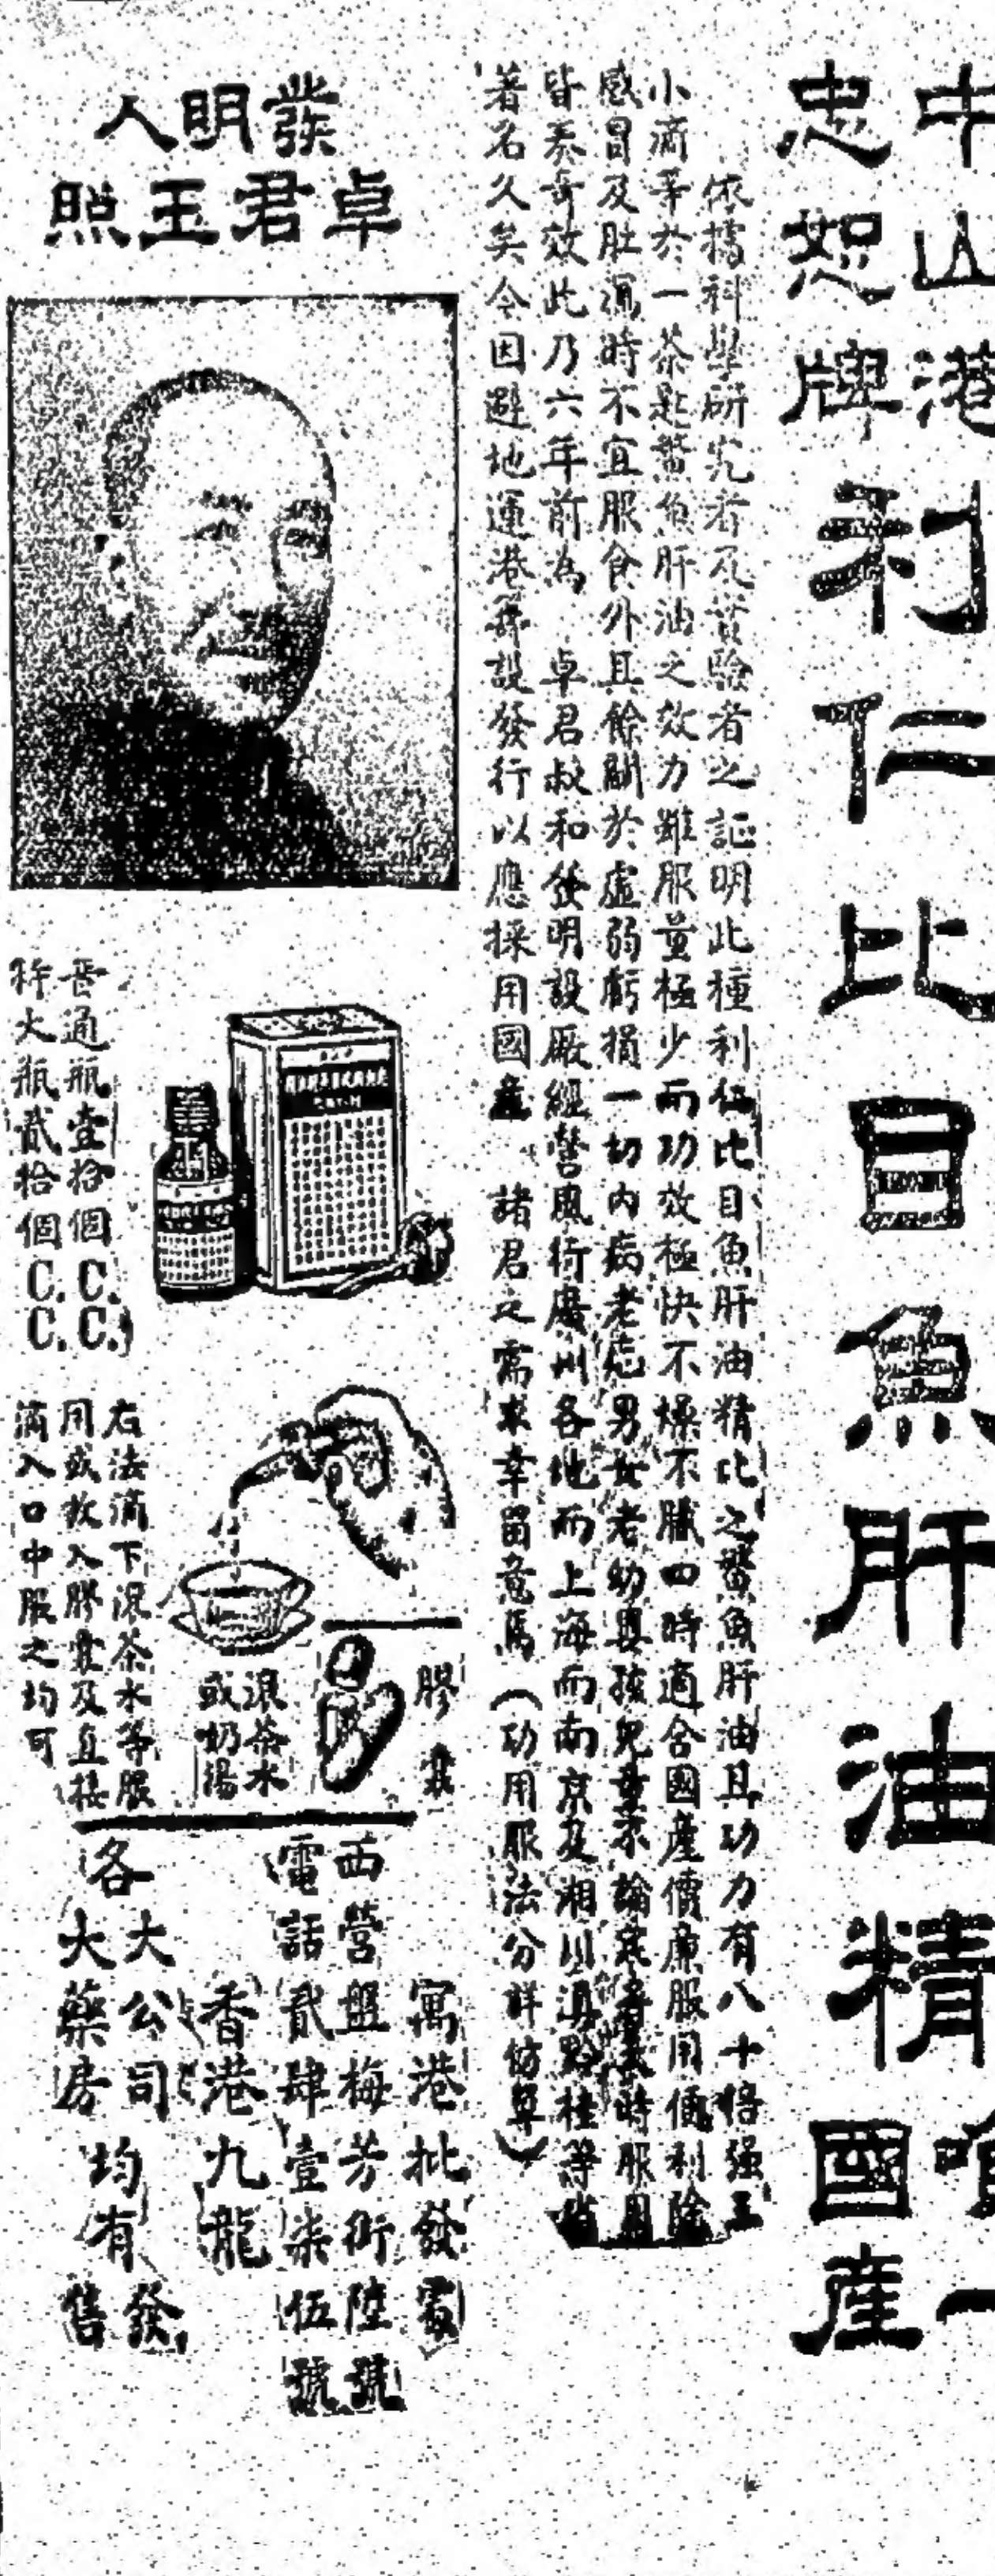 中山港
忠恕牌
利仁比目魚肝油精
唯一
國產
依據科學研究者及營驗者之証明此種利仁比目魚肝油精比之鰵魚肝油且功力有八十倍强五
小滴等於一茶匙鰵魚肝油之效力雖服量極少而功效極快不燥不膩四時適合國產價廉服用便利除
感冒及肚瀉時不宜服食外且餘關於虛弱虧損一切內病老憊男女老幼嬰孩兒童不論寒暑 時服用
皆奏奇效此乃六年前為 卓君叔和發明設厰經營風行廣州各地而上海而南京及湘川滇黔桂等省
著名久矣今因避地運港 設發行以應採用國產 諸君之需求幸留意焉(功用服法分詳仿單)
發明人
卓君玉照
普通瓶壹拾個C.C.
特大瓶貳拾個C.C.
膠囊
滾茶水
或奶湯
右法滴下滾茶水等服
用或放入膠囊及直接
滴入口中服之均可
寓港批發處
西營盤梅芳街陸號
電話貳肆壹柒伍號
香港九龍
各大公司
大藥房
均有發售